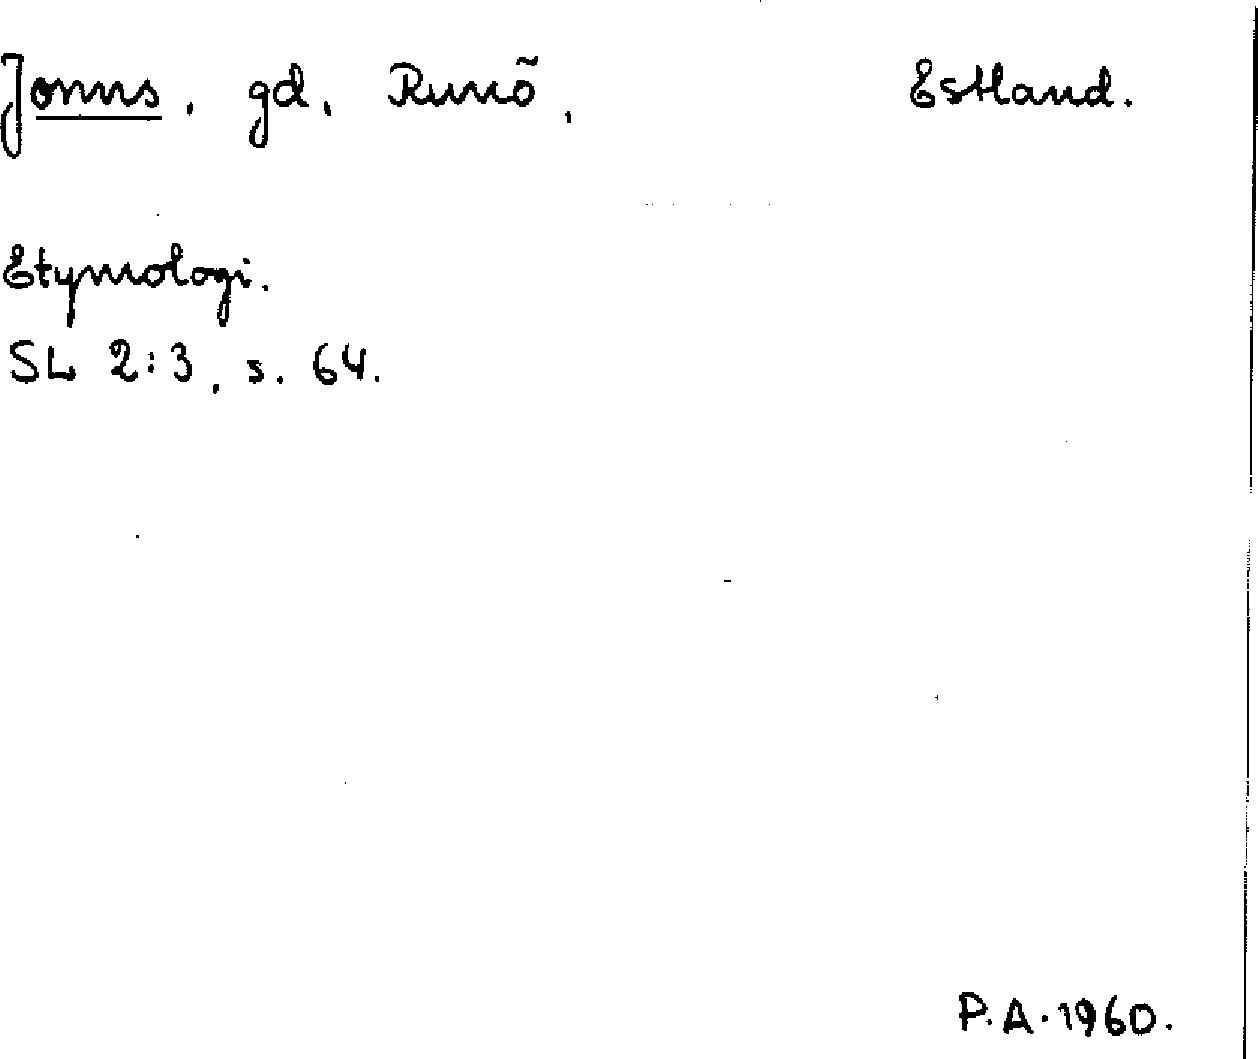 Jonns, gd, Runö, Estland.
Etymologi.
SL 2:3, s. 64.
P.A. 1960.